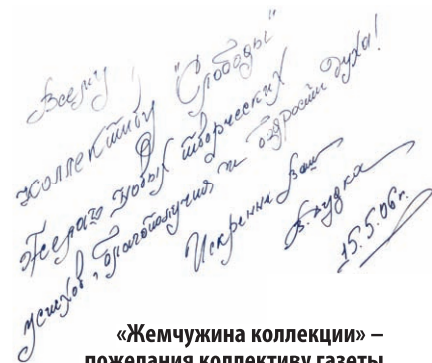 Всему
коллективу "Слободы"
Желаю новых творческих
успехов, благополучия и бодрости духа!
Искренне Ваш
В. Дудка
15.5.06г.
«Жемчужина коллекции» –
пожелания коллективу газеты